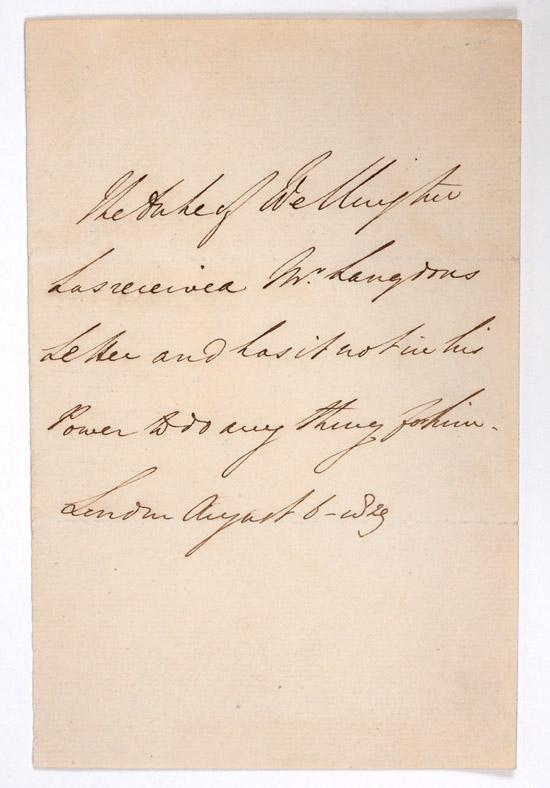 The Duke of Wellington
has received Mr. Langdons
Letter and has it not in his
Power to do any thing for him.
London August 6 - 1829